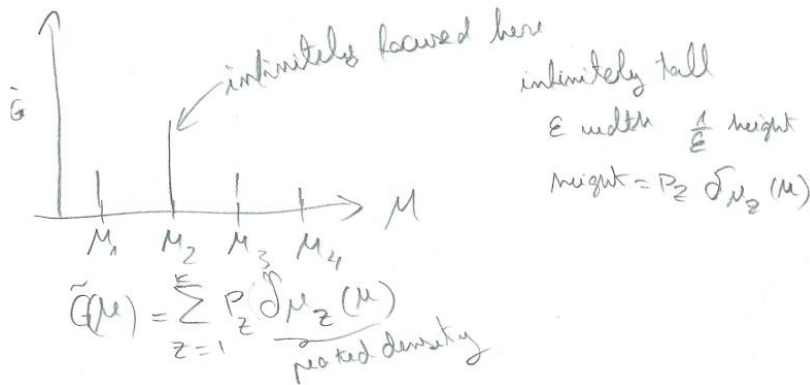 infinitely focused here
infinitely tall
ε width 1/ε height
height = P_z δ_{μ_z}(μ)
G̃
μ
μ_1 μ_2 μ_3 μ_4
G̃(μ) = Σ_{z=1}^{K} P_z δ_{μ_z}(μ)
density